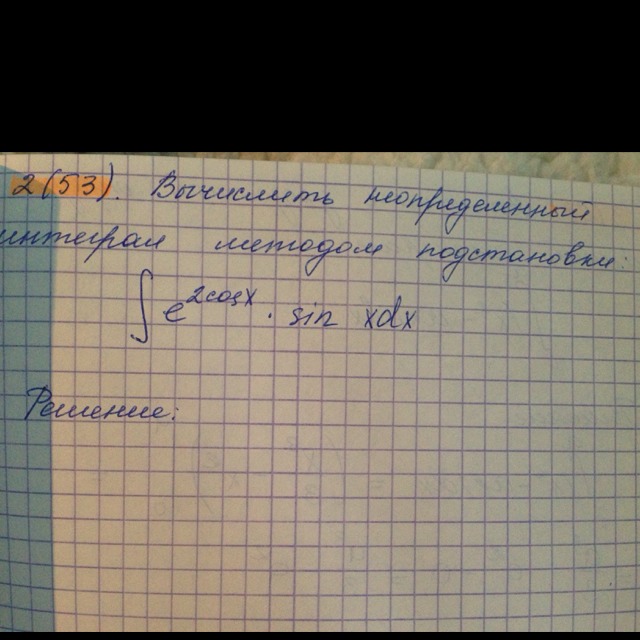 2(53). Вычислить неопределенный
интеграл методом подстановки:
∫ e^{2cosx} · sin xdx
Решение: